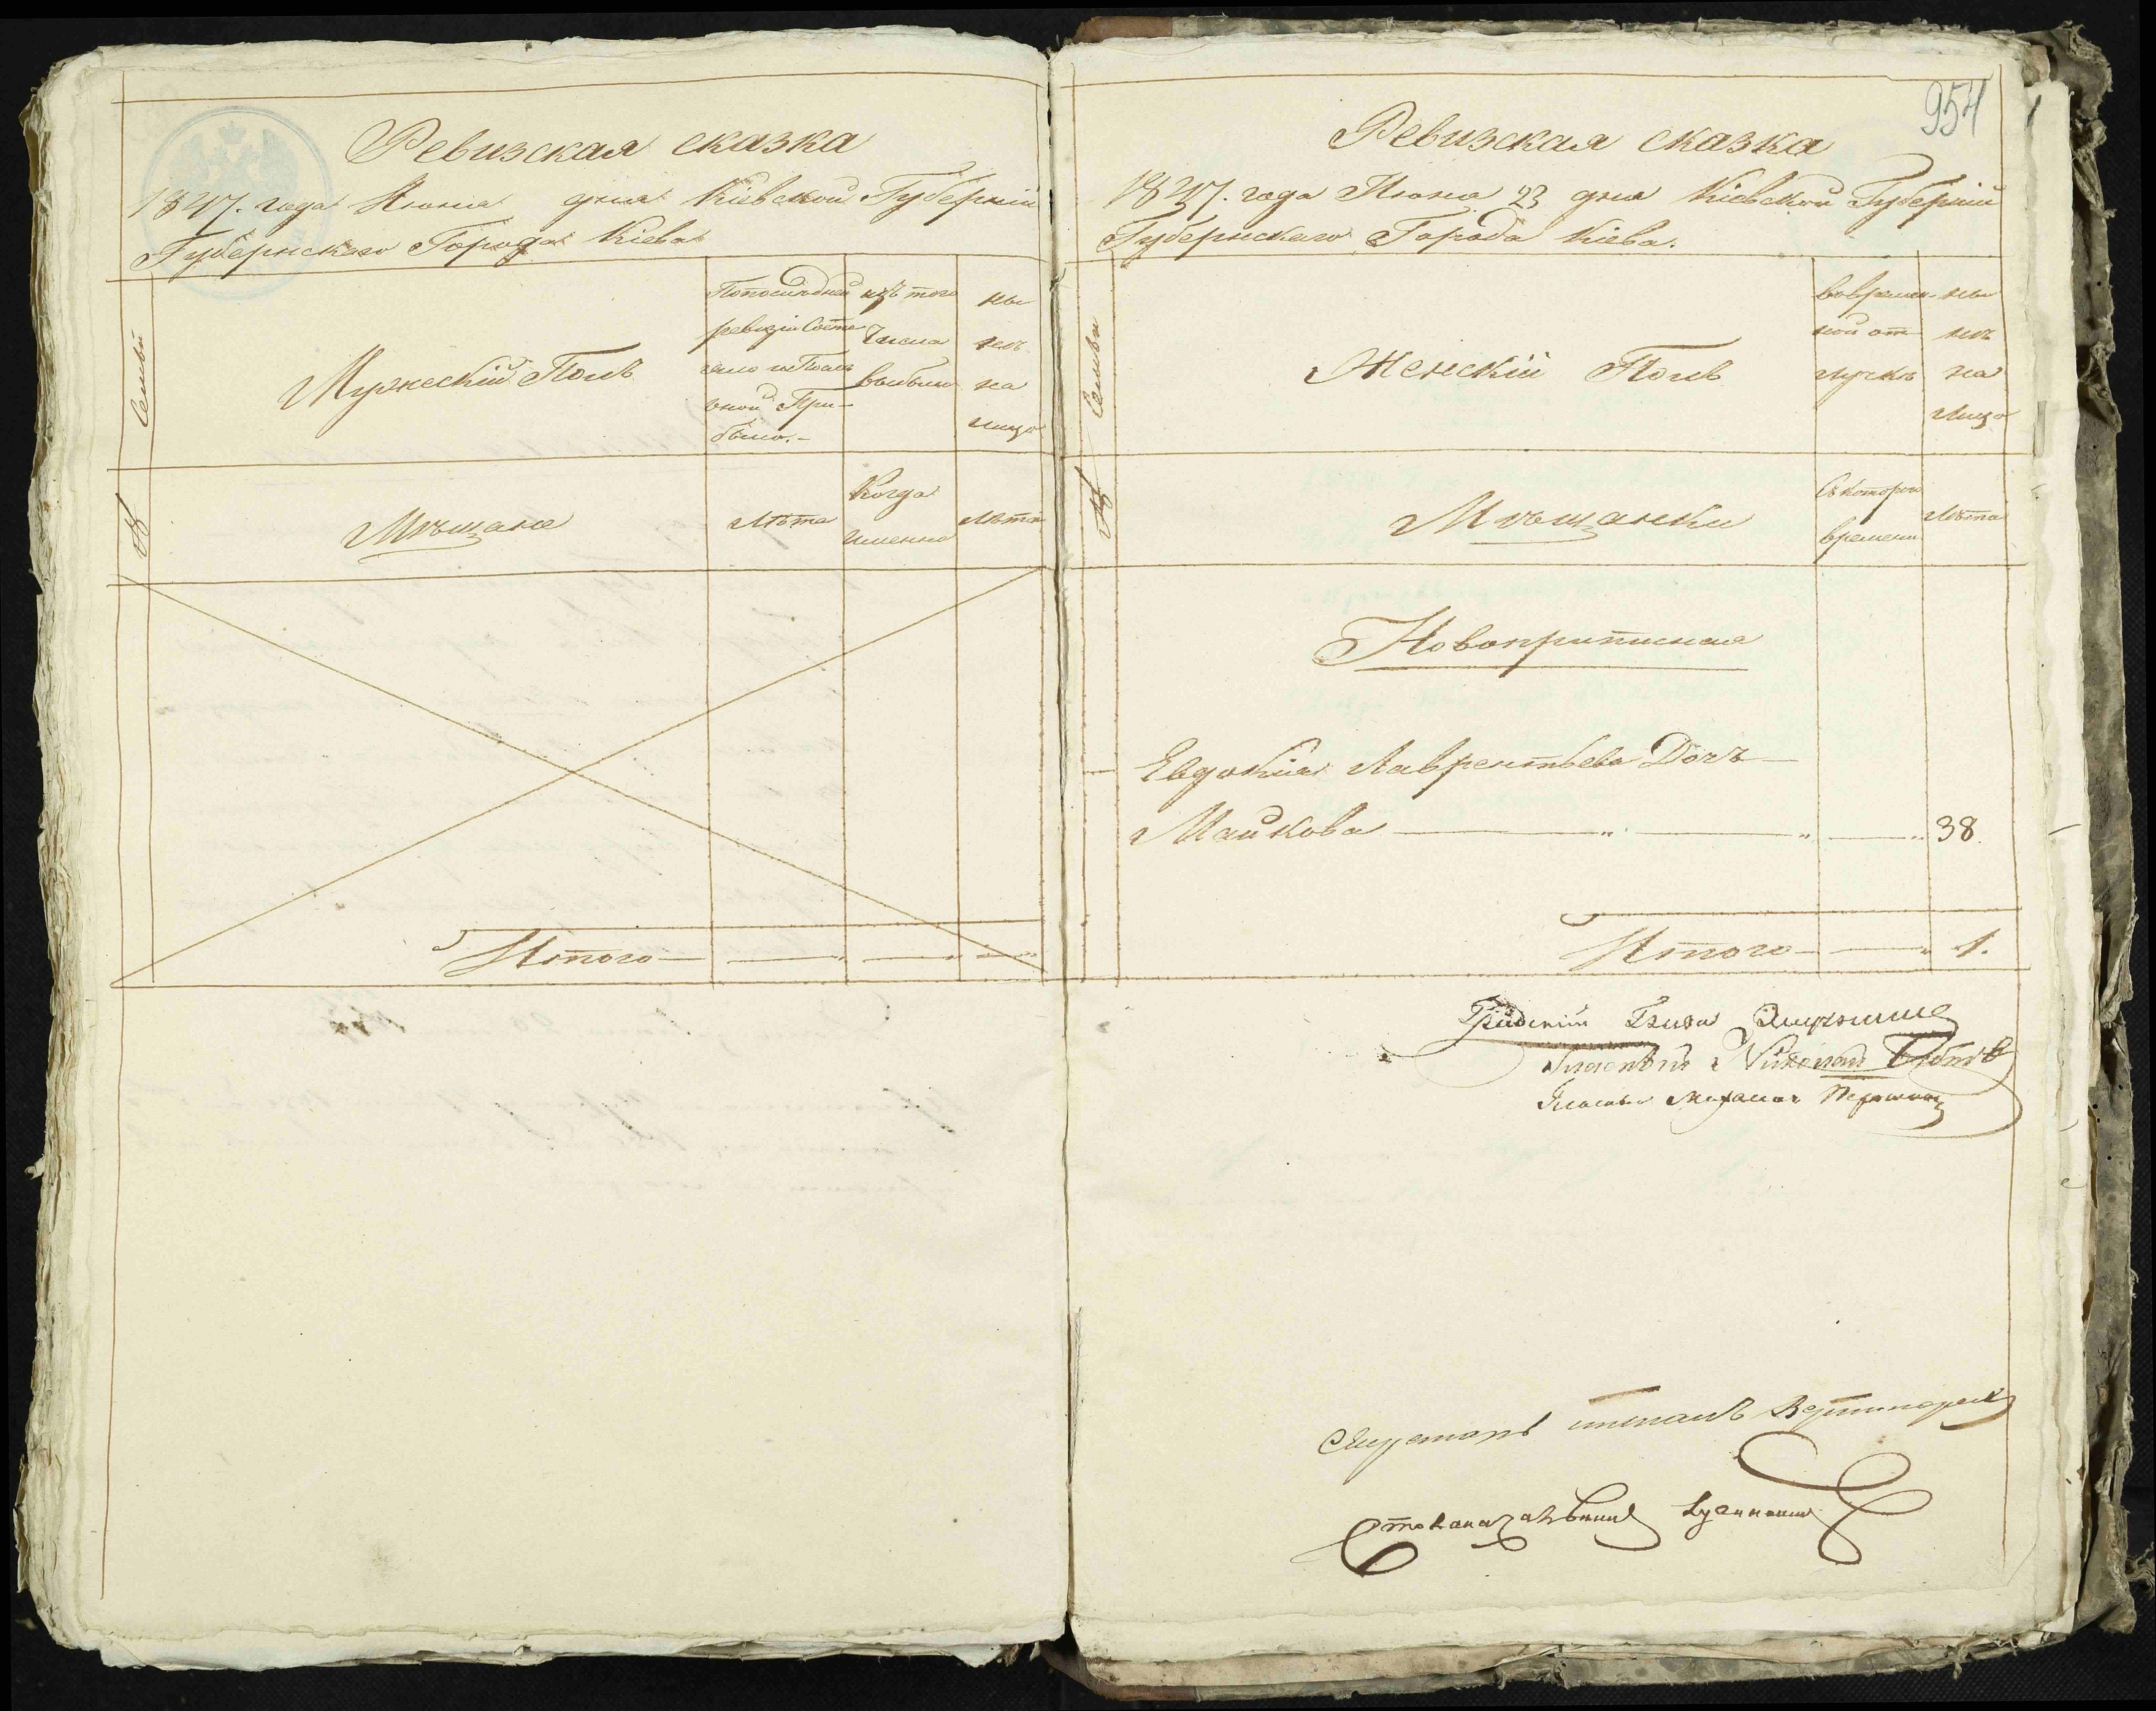 Ревизская сказка
1847. года Июня дня Кіевской Губерніи
Губернскаго Города Кіева
Семьи
Мужескій Полъ
По последней
ревизіи Состо
яло и После
оной При-
было.-
изъ того
Числа
выбыло
ны
нѣ
на
лицо
№
Мѣщане
Лѣта
Когда
именно
Лѣта
Итого
954
Ревизская сказка
1847. года Июня 23 дня Кіевской Губерніи
Губернскаго Города Кіева.
Семьи
Женскій Полъ
во времен
ной от
лучкѣ
ны
нѣ
на
Лицо
№
Мѣщанки
Съ котораго
времени
Лѣта
Новоприписная
Евдокіа Лаврентьева Дочь
Майкова 38.
Итого 1.
Градскій Глава
Гласный Николай
Гласный Михаилъ
Секретарь
Столоначальникъ